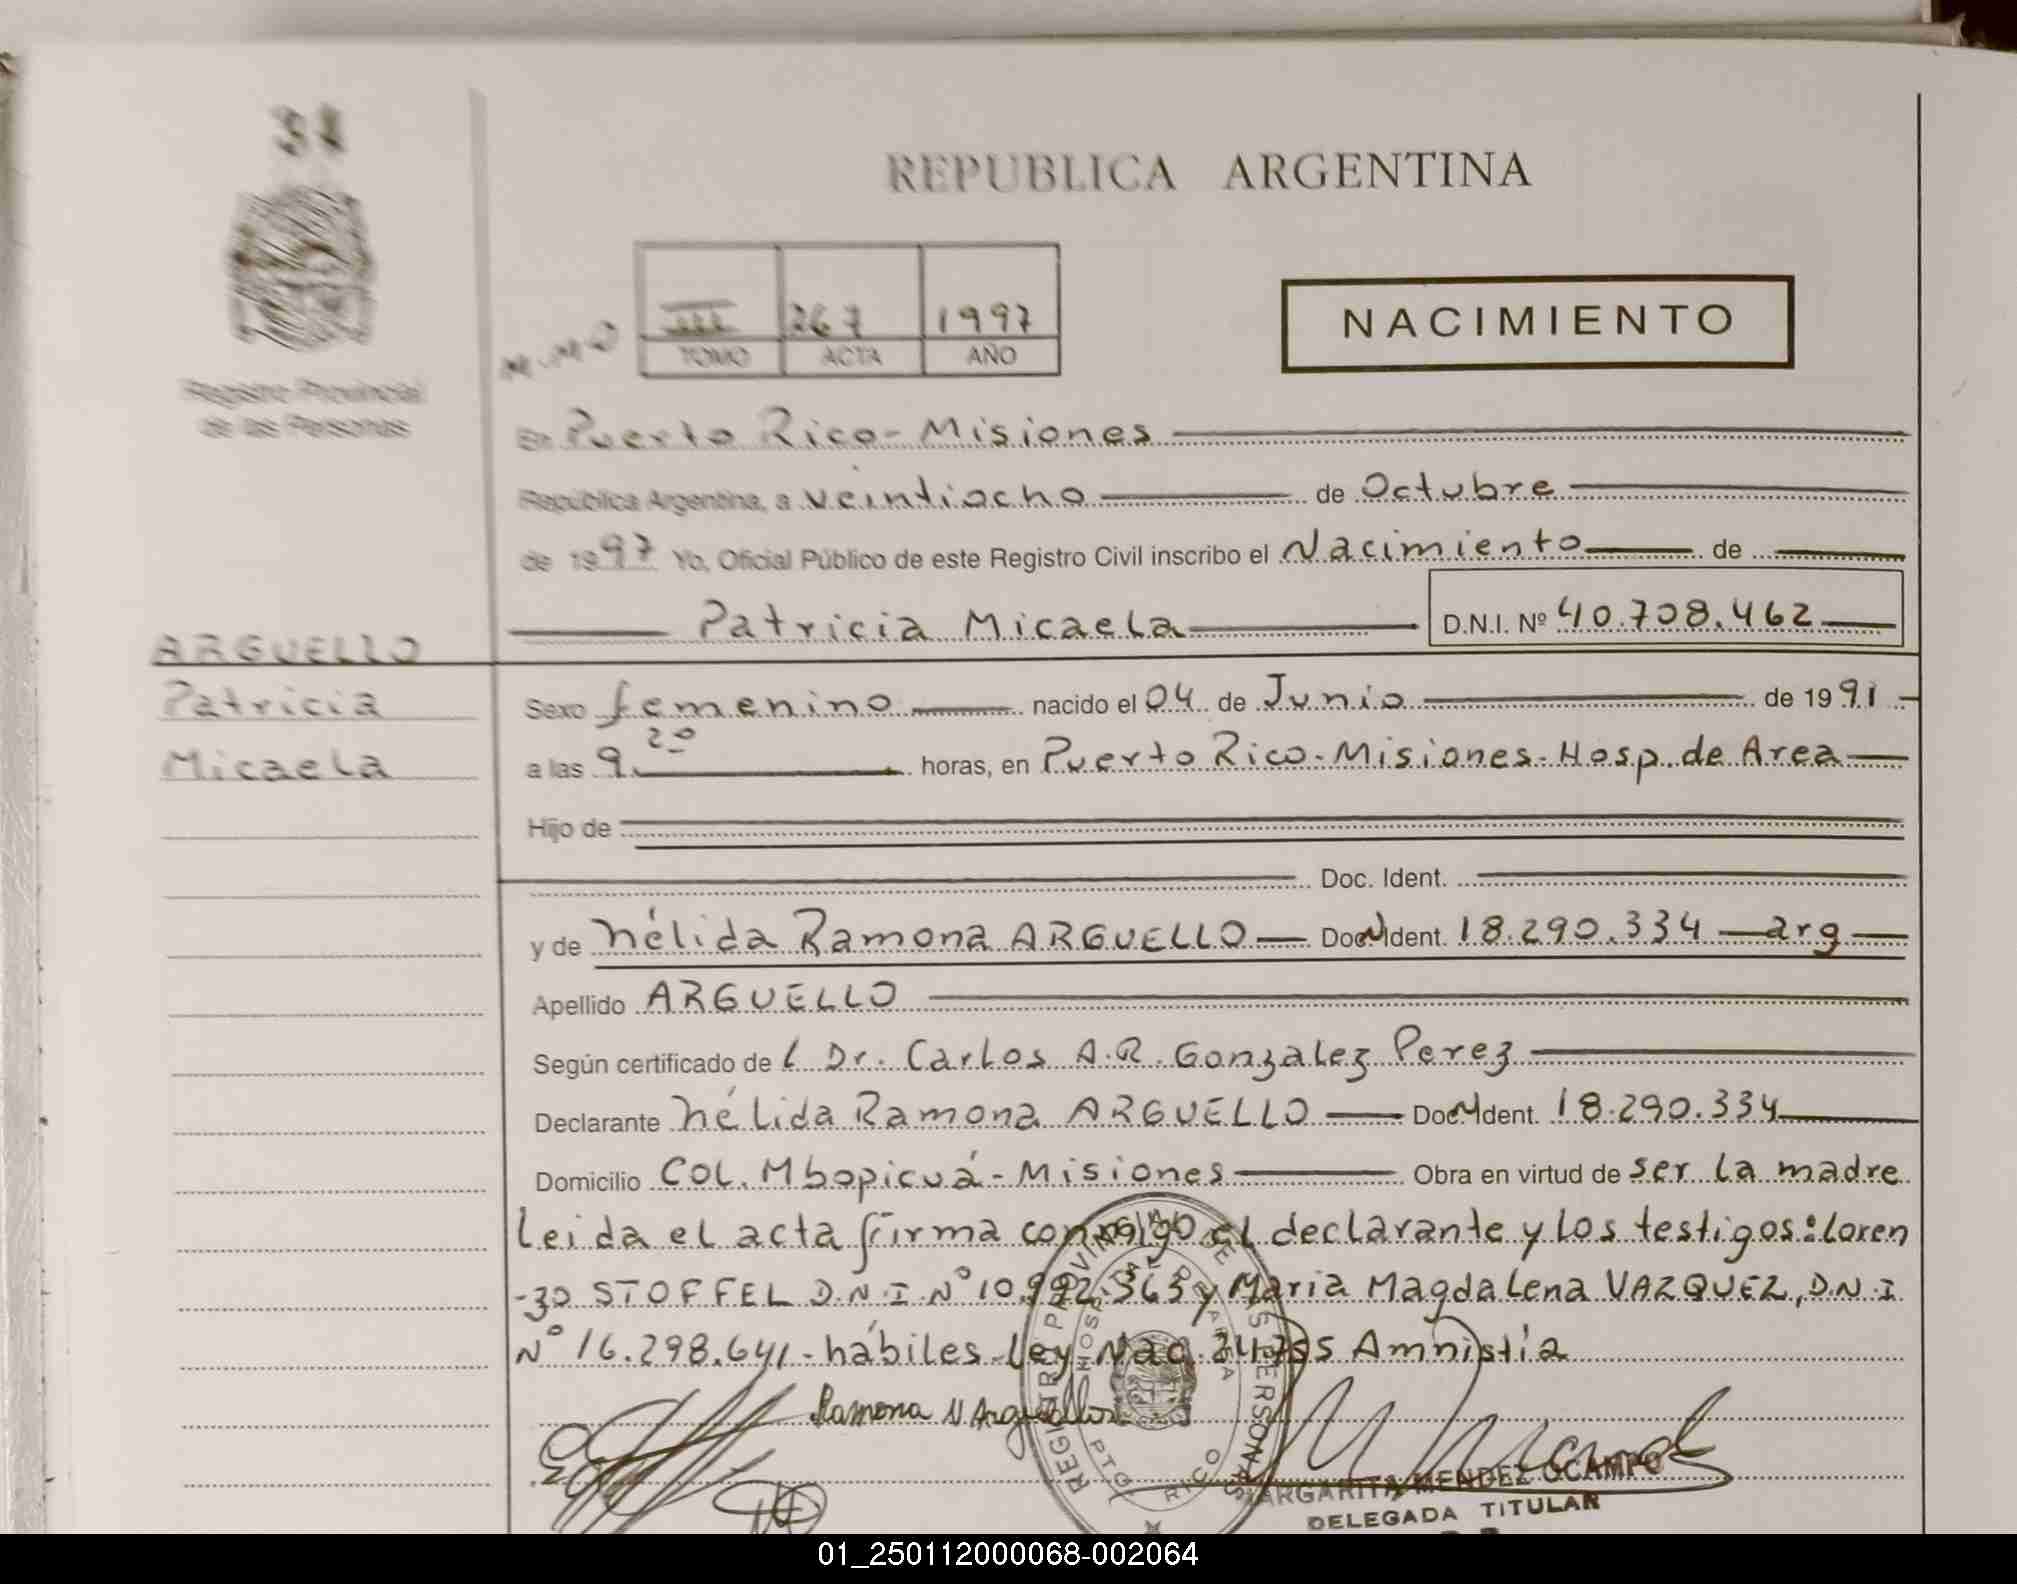 37
REPUBLICA ARGENTINA
III 267 1997
TOMO ACTA AÑO
NACIMIENTO
M.M.O
Registro Provincial
de las Personas
En Puerto Rico-Misiones
República Argentina, a veintiocho de Octubre
de 1997 Yo, Oficial Público de este Registro Civil inscribo el Nacimiento de
Patricia Micaela D.N.I. Nº 40.708.462
ARGUELLO
Patricia
Micaela
Sexo femenino nacido el 04 de Junio de 1991
a las 9.20 horas, en Puerto Rico-Misiones-Hosp. de Area
Hijo de
Doc. Ident.
y de Nélida Ramona ARGUELLO Doc. Ident. 18.290.334 arg
Apellido ARGUELLO
Según certificado de l Dr. Carlos A.R. Gonzalez Perez
Declarante Nélida Ramona ARGUELLO Doc. Ident. 18.290.334
Domicilio COL. Mbopicuá-Misiones Obra en virtud de ser la madre
leida el acta firma conmigo el declarante y los testigos: Loren
-zo STOFFEL D.N.I Nº 10.992.363 y Maria Magdalena VAZQUEZ, D.N.I
Nº 16.298.641-hábiles-Ley Nac. 24755 Amnistía
Ramona N Arguello
REGISTRO PROVINCIAL DE LAS PERSONAS
HOSPITAL DE AREA
PTO. RICO
MARGARITA MENDEZ OCAMPO
DELEGADA TITULAR
01_250112000068-002064